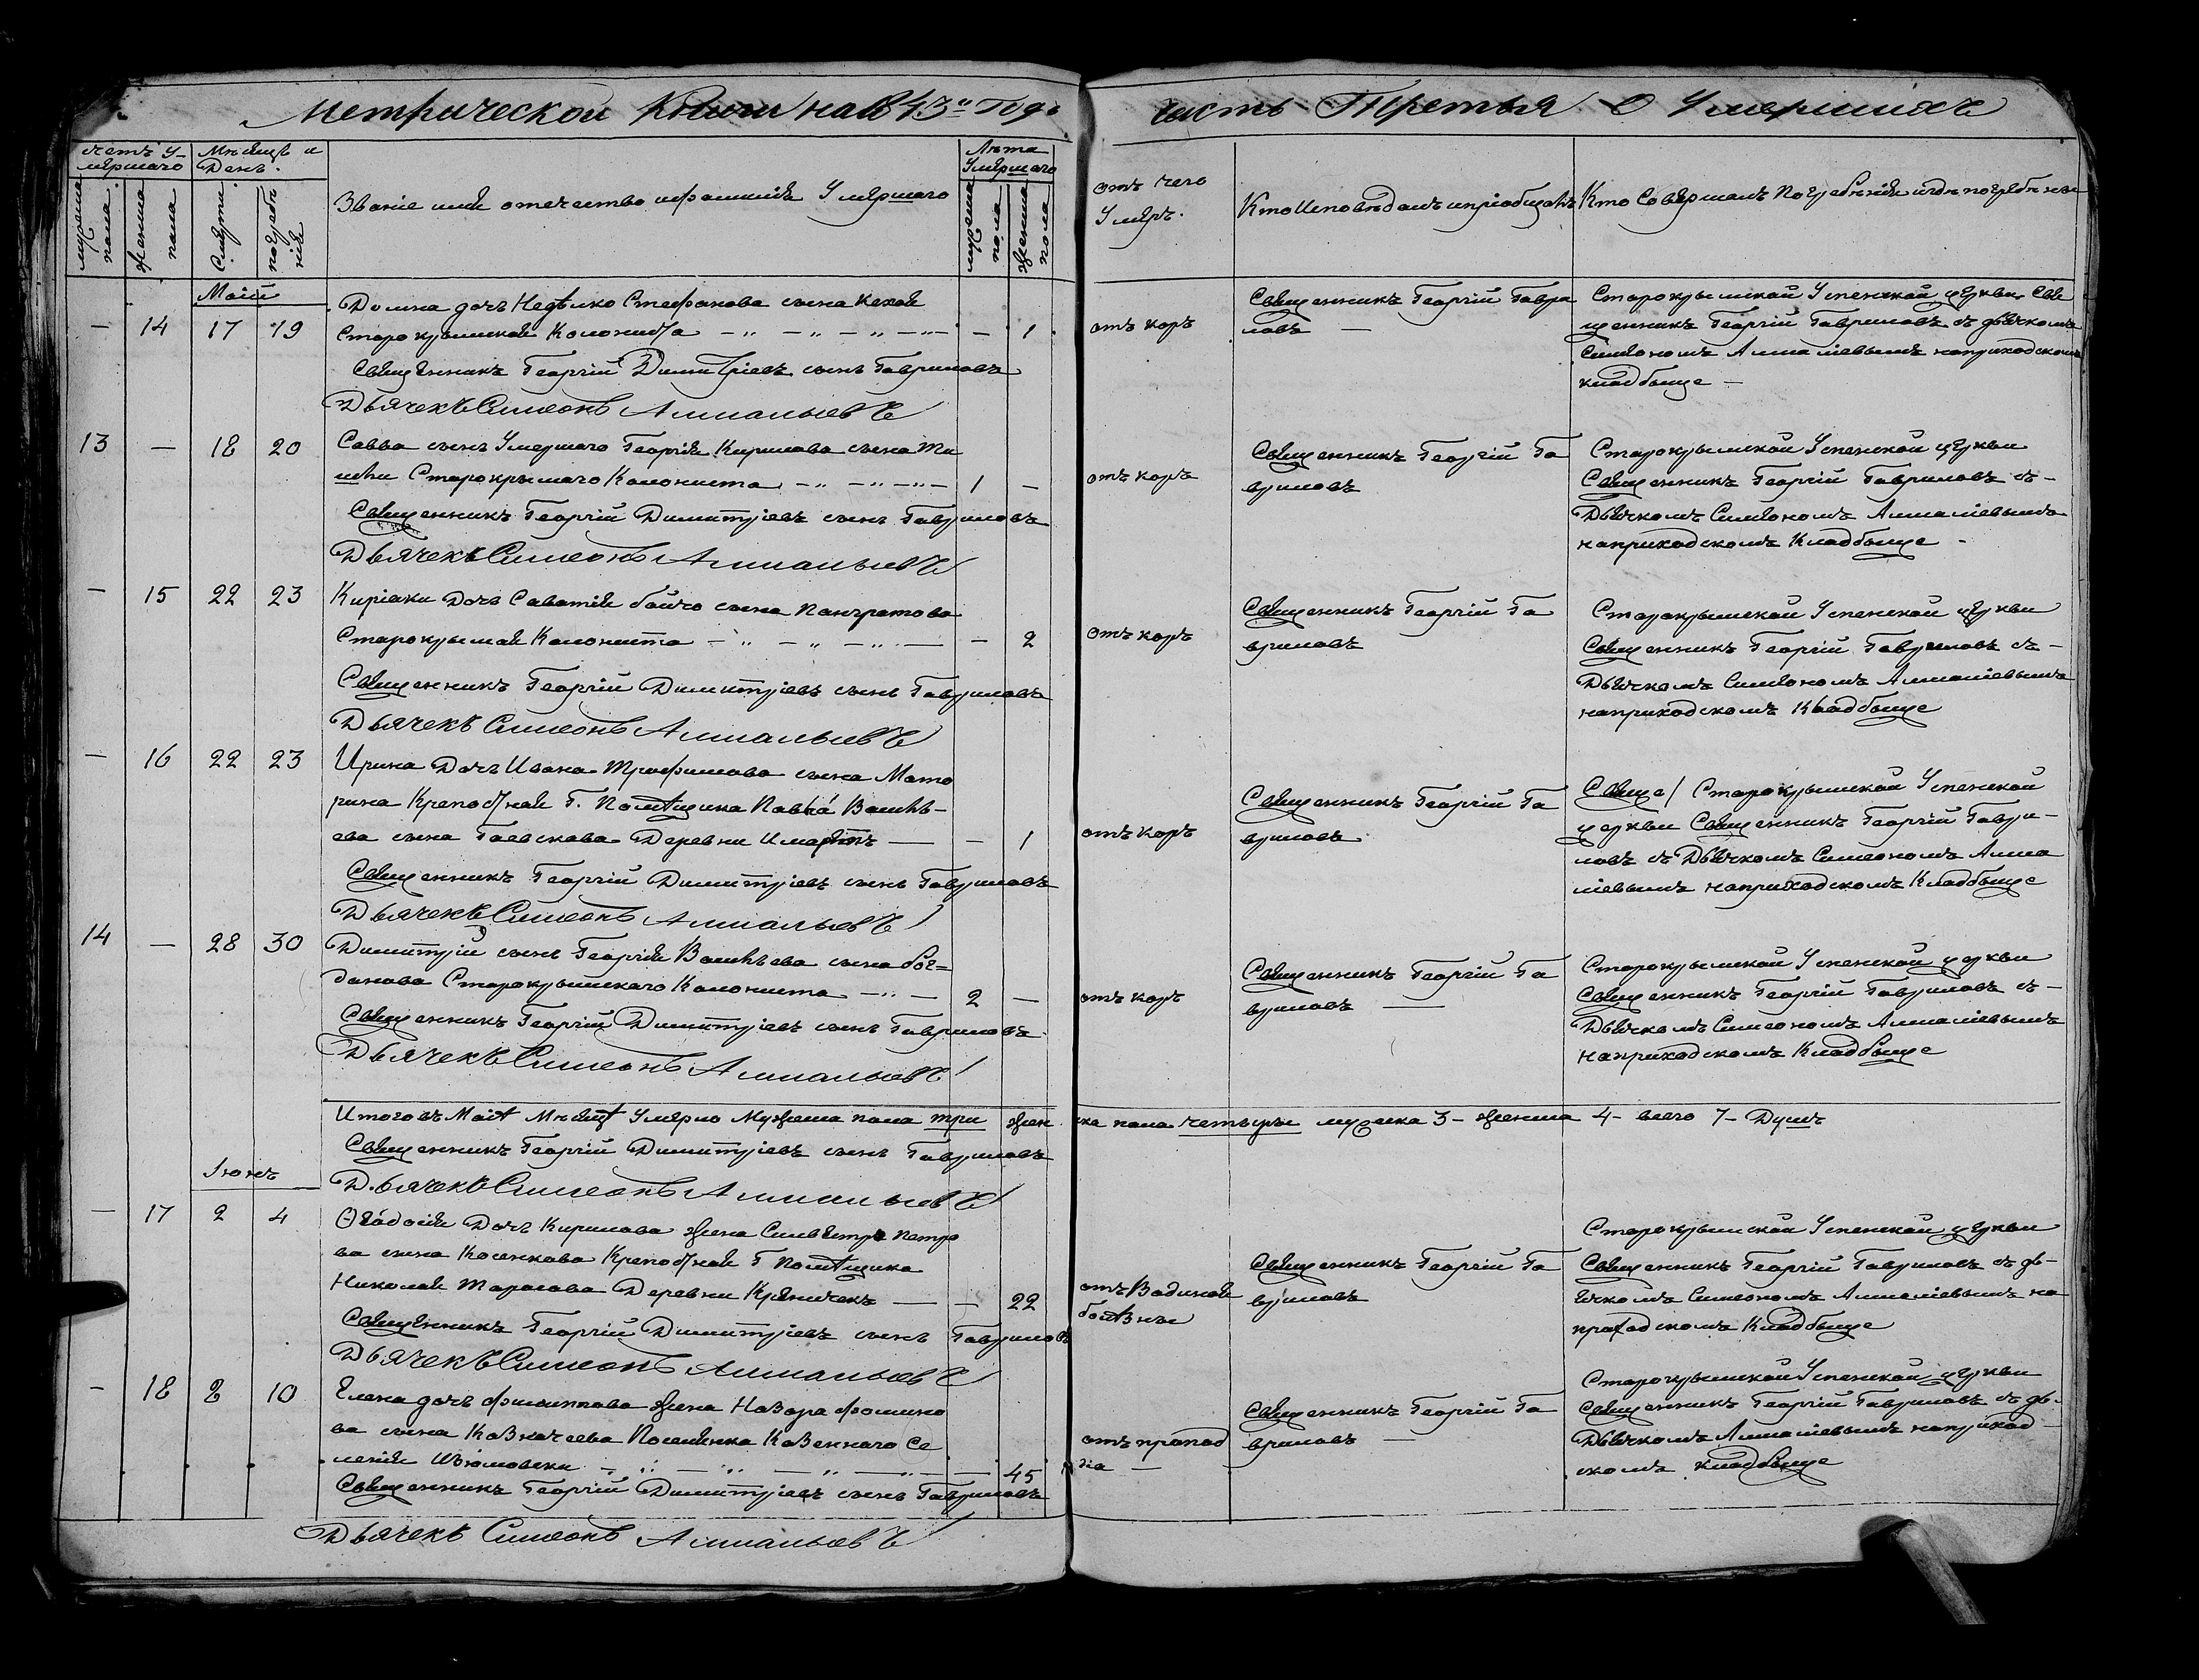 Метрической Книги на 1843й Годъ часть Третья О Умершихъ
Счетъ Умершаго
Мѣсяцъ и День.
Званіе имя отечество и фамилія Умершаго
Лѣта Умершаго
отъ чего Умеръ.
Кто Исповѣдалъ и пріобщалъ
Кто Совершалъ Погребеніе и гдѣ погребены
мужеска пола
женска пола
Смерти
погребенія
мужеска пола
женска пола
Маій
— 14 17 19
Домна дочь Недѣлко Стефанова сына
Старокрымской Колониста — 1
Священникъ Георгій Димитріевъ сынъ Гавриловъ
Дьячекъ Симеонъ
отъ корь
Священникъ Георгій Гаври
ловъ —
Старокрымской Успенской церкви Свя
щенникъ Георгій Гавриловъ съ дьячкомъ
Симеономъ на приходскомъ
кладбище —
13 — 18 20
Савва сынъ Умершаго Георгія Кирилова сына
Старокрымаго Колониста 1 —
Священникъ Георгій Димитріевъ сынъ Гавриловъ
Дьячекъ Симеонъ
отъ корь
Священникъ Георгій Га
вриловъ
Старокрымской Успенской церкви
Священникъ Георгій Гавриловъ съ —
Дьячкомъ Симеономъ
на приходскомъ Кладбище —
— 15 22 23
Киріаки Дочь Саватія бойчо сына Панкратова
Старокрымой Колониста — 2
Священникъ Георгій Димитріевъ сынъ Гавриловъ
Дьячекъ Симеонъ
отъ корь
Священникъ Георгій Га
вриловъ
Старокрымской Успенской церкви
Священникъ Георгій Гавриловъ съ —
Дьячкомъ Симеономъ
на приходскомъ Кладбище
— 16 22 23
Ирина Дочь Ивана Трофимова сына Мато
рина Крепостной Г. Помѣщика Павла Василь-
ева сына Гаевскова Деревни — 1
Священникъ Георгій Димитріевъ сынъ Гавриловъ
Дьячекъ Симеонъ
отъ корь
Священникъ Георгій Га
вриловъ
Старокрымской Успенской
церкви Священникъ Георгій Гаври-
ловъ съ Дьячкомъ Симеономъ
на приходскомъ Кладбище
14 — 28 30
Димитрій сынъ Георгія Васильева сына Бог=
данова Старокрымскаго Колониста 2 —
Священникъ Георгій Димитріевъ сынъ Гавриловъ
Дьячекъ Симеонъ
отъ корь
Священникъ Георгій Га
вриловъ —
Старокрымской Успенской церкви
Священникъ Георгій Гавриловъ съ —
Дьячкомъ Симеономъ
на приходскомъ Кладбище
Итого въ Маіѣ Мѣсяцѣ Умерло Мужеска пола три женска пола четыры мужска 3 – женска 4 – всего 7 – Душъ
Священникъ Георгій Димитріевъ сынъ Гавриловъ
Дьячекъ Симеонъ
Іюнь
— 17 2 4
Ѳеодосія Дочь Кирилова жена Силвестра Петро
ва сына Косенкова Крепостной Г Помѣщика
Николая Тарасова Деревни — 22
Священникъ Георгій Димитріевъ сынъ Гавриловъ
Дьячекъ Симеонъ
отъ
болѣзны
Священникъ Георгій Га
вриловъ
Старокрымской Успенской церкви
Священникъ Георгій Гавриловъ съ дья-
чкомъ Симеономъ на
приходскомъ Кладбище
— 18 8 10
Елена дочь Филиппова жена Назара Фомино
ва сына Казначеева Казеннаго Се
ленія Изюмовки — 45
Священникъ Георгій Димитріевъ сынъ Гавриловъ
Дьячекъ Симеонъ
Священникъ Георгій Га
вриловъ —
Старокрымской Успенской церкви
Священникъ Георгій Гавриловъ съ
Дьячкомъ на приход
скомъ кладбище